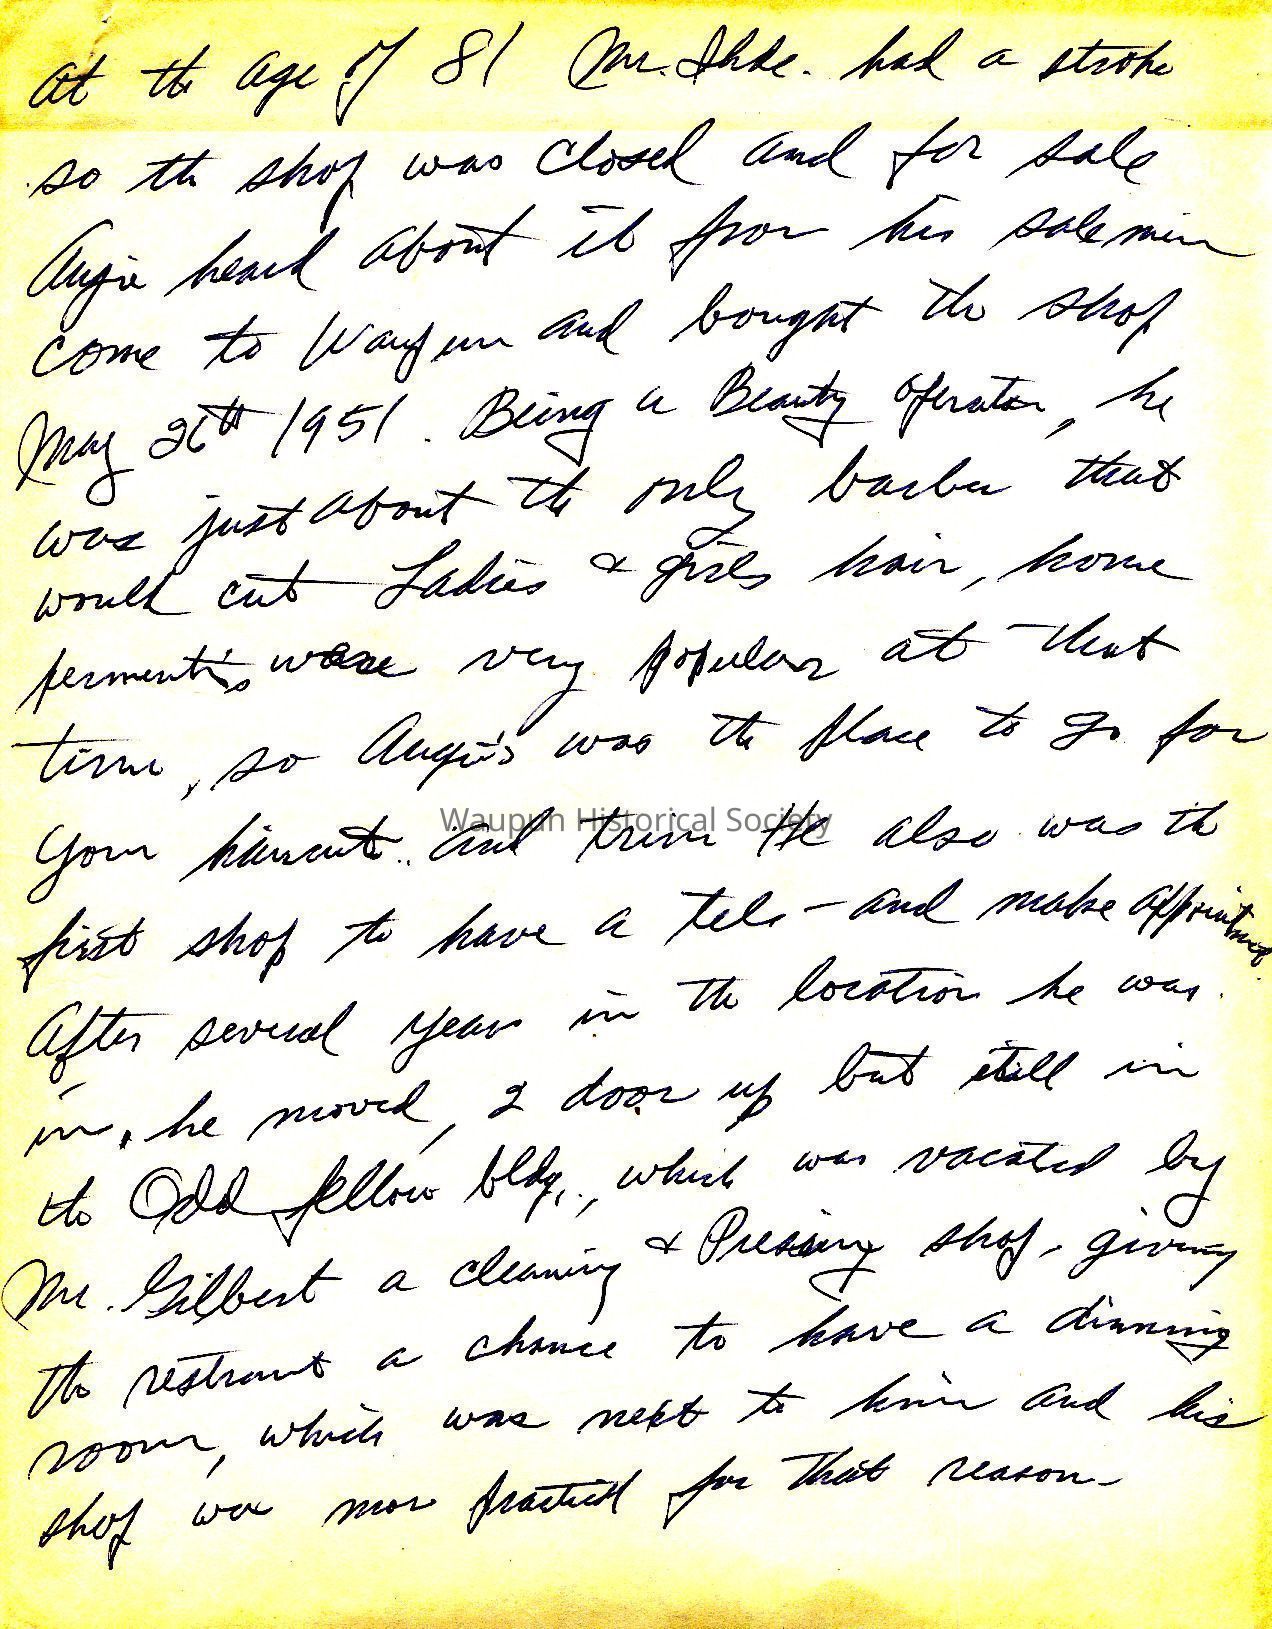 At the age of 81 Mr. Ihde. had a stroke
so the shop was closed and for sale
Augie heard about it from his salemen
come to Waupun and bought the shop
May 26th 1951. Being a Beauty operator, he
was just about the only barber that
would cut Ladies & girls hair, home
perments were very popular at that
time, so Augie's was the place to go for
your haircut.. and trim He also was the
first shop to have a tele - and make appointment.
After several years in the location he was.
in, he moved, 2 door up but still in
the Odd fellow bldg., which was vacated by
Mr. Gilbert a cleaning & Pressing shop, giving
the restraunt a chance to have a dinning
room, which was next to him and his
shop was more practical for that reason-
Waupun Historical Society